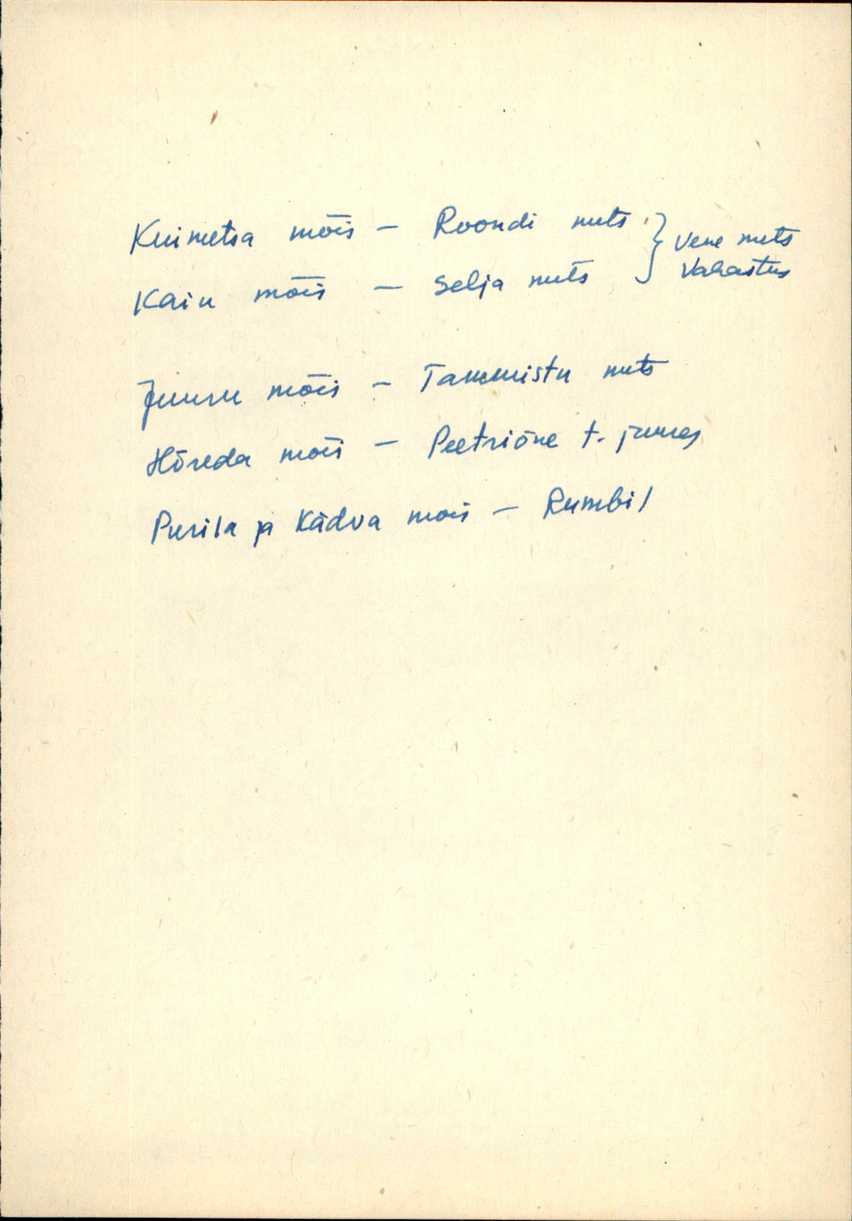 Kuimetsa mõis – Roondi mets } Vene mets
Kaiu mõis – Selja mets } Vahastus
Juuru mõis – Tammistu mets
Hõreda mõis – Peetriõue t. juures
Purila ja Kädva mõis – Rumbil